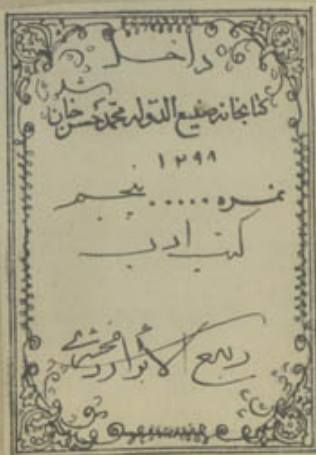 داخل
کتابخانه صنیع الدوله محمد حسن خان شد
۱۲۹۸
نمره ..... پنجم
کتب ادب
ربیع الابرار زمخشری